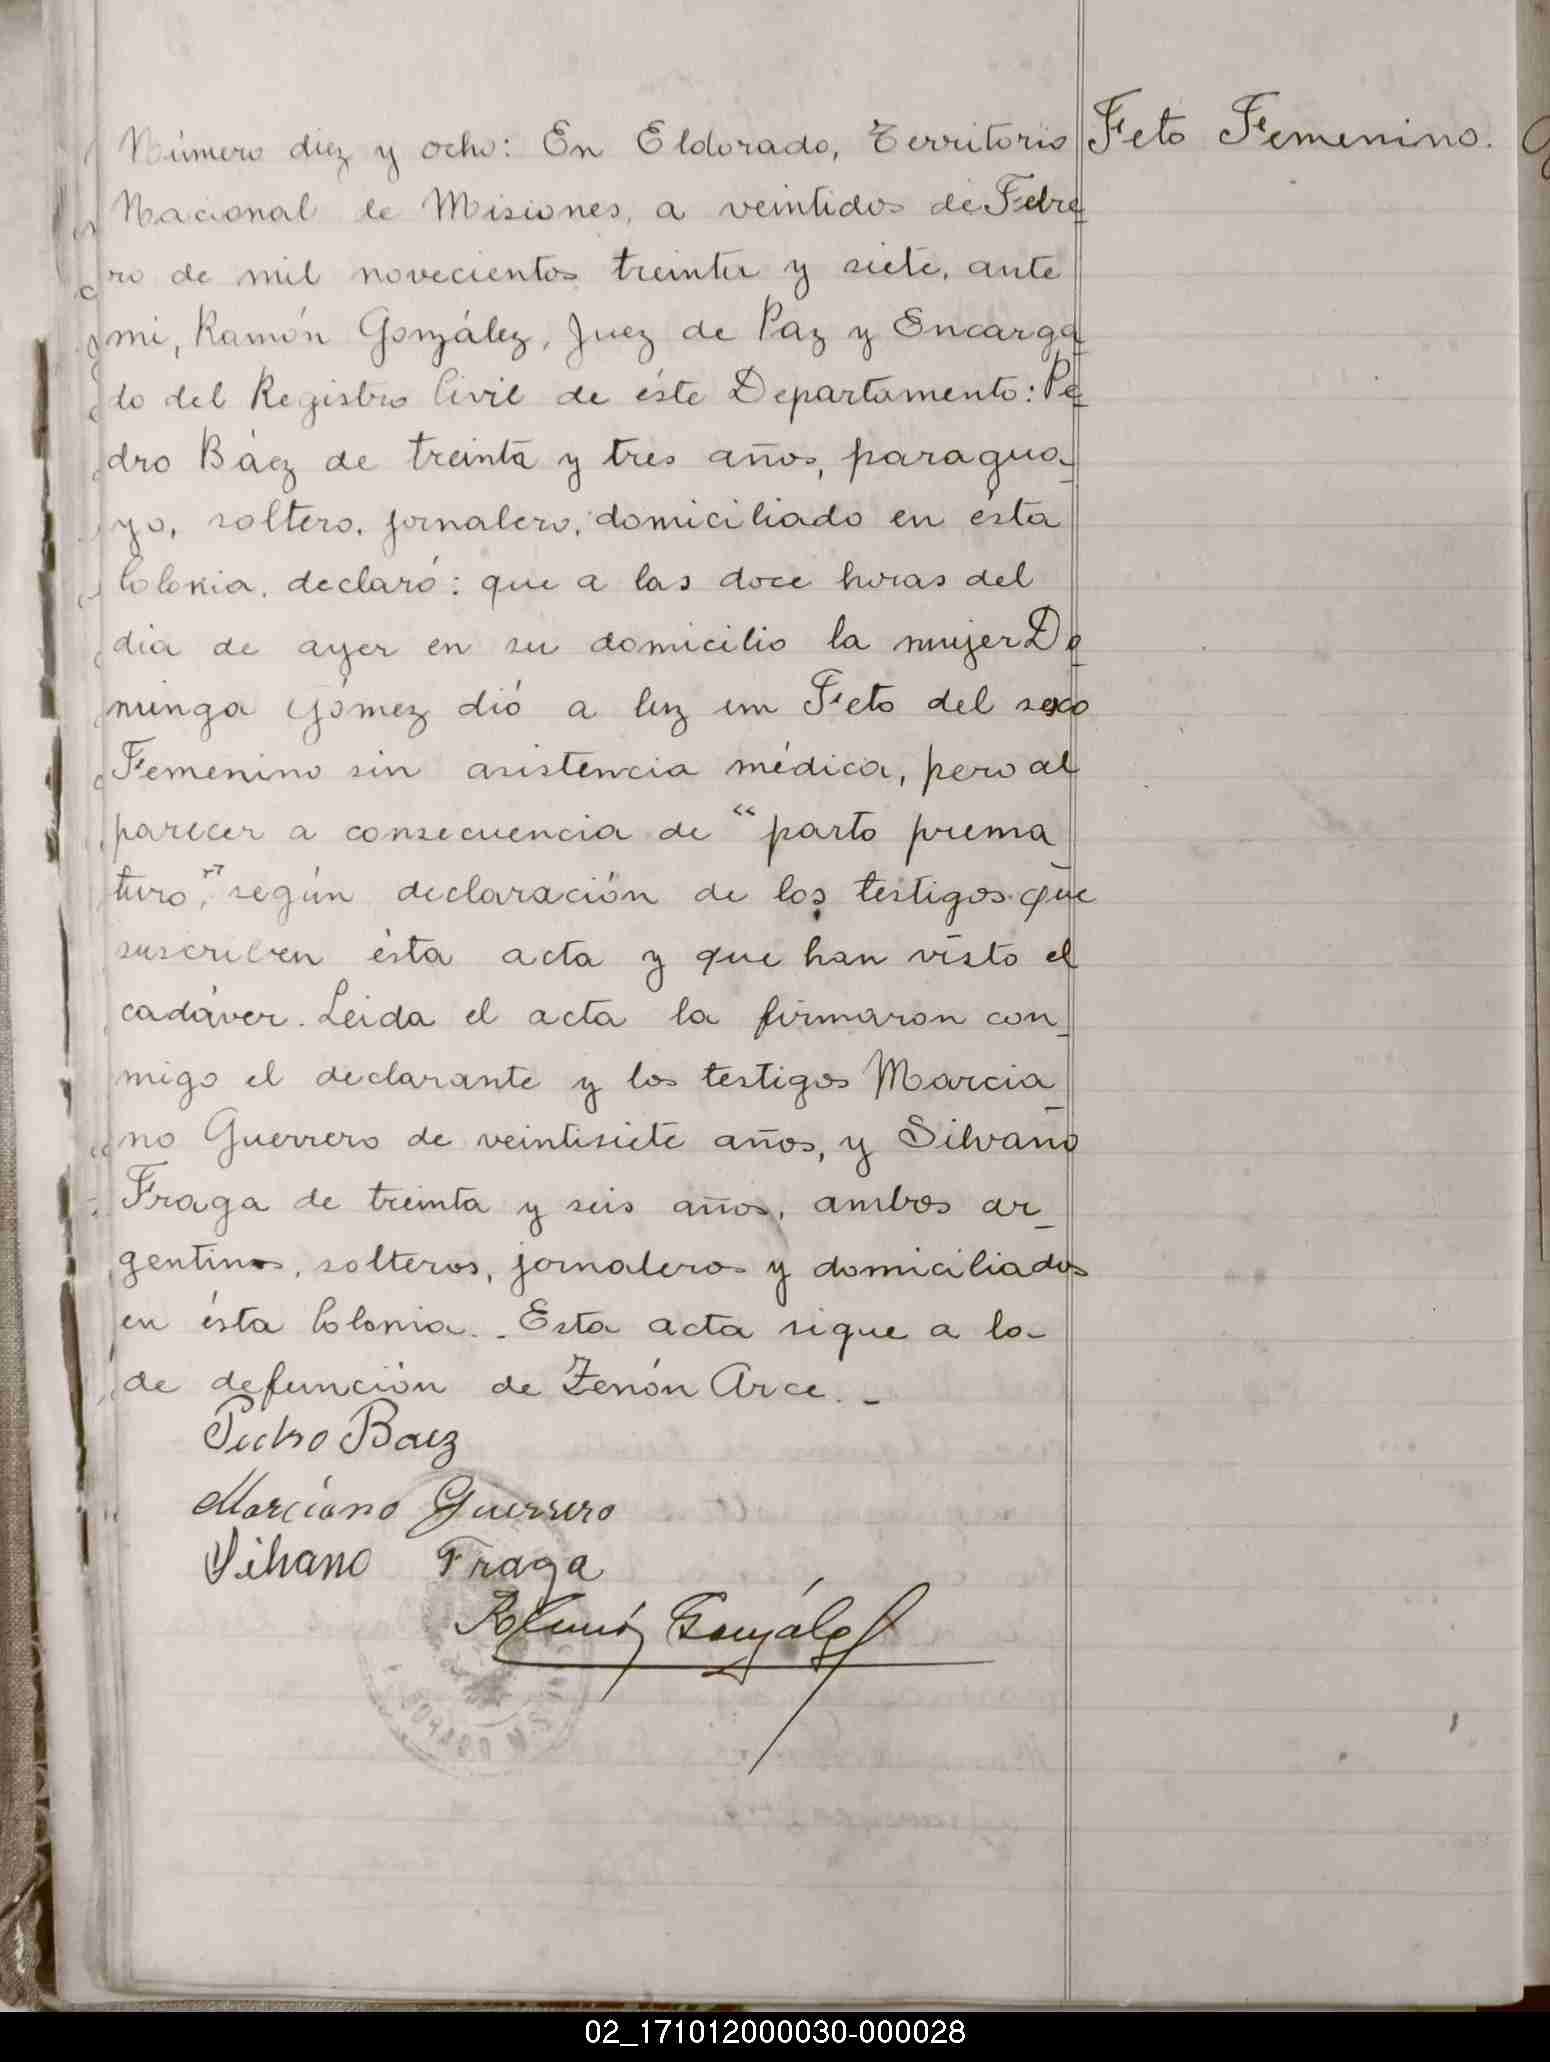 Feto Femenino.
Número diez y ocho: En Eldorado, Territorio
Nacional de Misiones, a veintidos de Febre-
ro de mil novecientos treinta y siete, ante
mi, Ramón González, Juez de Paz y Encarga-
do del Registro Civil de éste Departamento: Pe-
dro Báez de treinta y tres años, paragua-
yo, soltero, jornalero, domiciliado en ésta
Colonia, declaró: que a las doce horas del
dia de ayer en su domicilio la mujer Do-
minga Gómez dió a luz un Feto del sexo
Femenino sin asistencia médica, pero al
parecer a consecuencia de "parto prema-
turo", según declaración de los testigos que
suscriben ésta acta y que han visto el
cadáver. Leida el acta la firmaron con-
migo el declarante y los testigos Marcia-
no Guerrero de veintisiete años, y Silvano
Fraga de treinta y seis años, ambos ar-
gentinos, solteros, jornaleros y domiciliados
en ésta Colonia.- Esta acta sigue a la
de defunción de Zenón Arce.-
Pedro Baez
Marciano Guerrero
Silvano Fraga
Ramón González
02_171012000030-000028